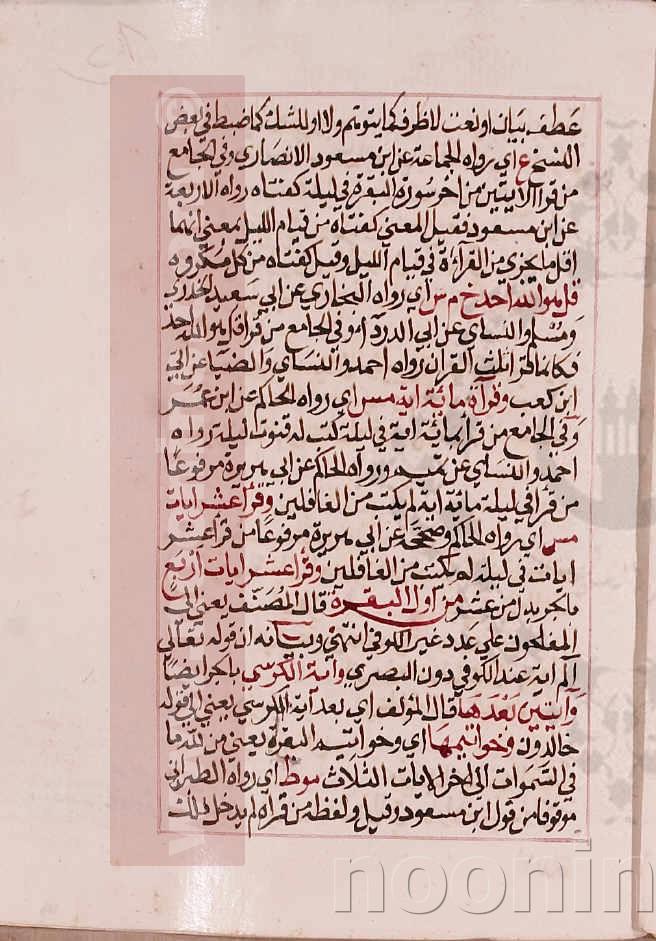 عطف بيان او نعت لا ظرف كما يتوهم ولا او للشك كما ضبط في بعض
النسخ ع اي رواه الجماعة عن ابن مسعود الانصاري وفي الجامع
من قرا الايتين من اخر سورة البقرة في ليلة كفتاه رواه الاربعة
عن ابن مسعود فقيل المعنى كفتاه من قيام الليل بمعنى انهما
اقل ما يجزي من القراءة في قيام الليل وقيل كفتاه من كل مكروه
قل هو الله احد خ م س اي رواه البخاري عن ابي سعيد الخدري
ومسلم والنساي عن ابي الدرداء وفي الجامع من قرا قل هو الله احد
فكانما قرا ثلث القران رواه احمد والنساي والضيا عن ابي
ابن كعب وقرآة مائة اية مس اي رواه الحاكم عن ابن عمر
وفي الجامع من قرا بمائة اية في ليلة كتب له قنوت ليلة رواه
احمد والنساي عن تميم ورواه الحاكم عن ابي هريرة مرفوعا
من قرا في ليلة مائة اية لم يكتب من الغافلين وقرا عشر ايات
مس اي رواه الحاكم وصححه عن ابي هريرة مرفوعا من قرا عشر
ايات في ليلة لم يكتب من الغافلين وقرا عشر ايات اربع
بالجر بدل من عشر من اول البقرة قال المصنف يعني الى
المفلحون على عدد غير الكوفي انتهى وبيانه ان قوله تعالى
الم اية عند الكوفي دون البصري واية الكرسي بالجر ايضا
وآيتين بعدها قال المؤلف اي بعد آية الكرسي يعني الى قوله
خالدون وخواتيمها اي وخواتيم البقرة يعني من لله ما
في السموات الى اخر الايات الثلاث موط اي رواه الطبراني
موقوفا من قول ابن مسعود وقيل ولفظه من قراه لم يدخل ذلك
noonin